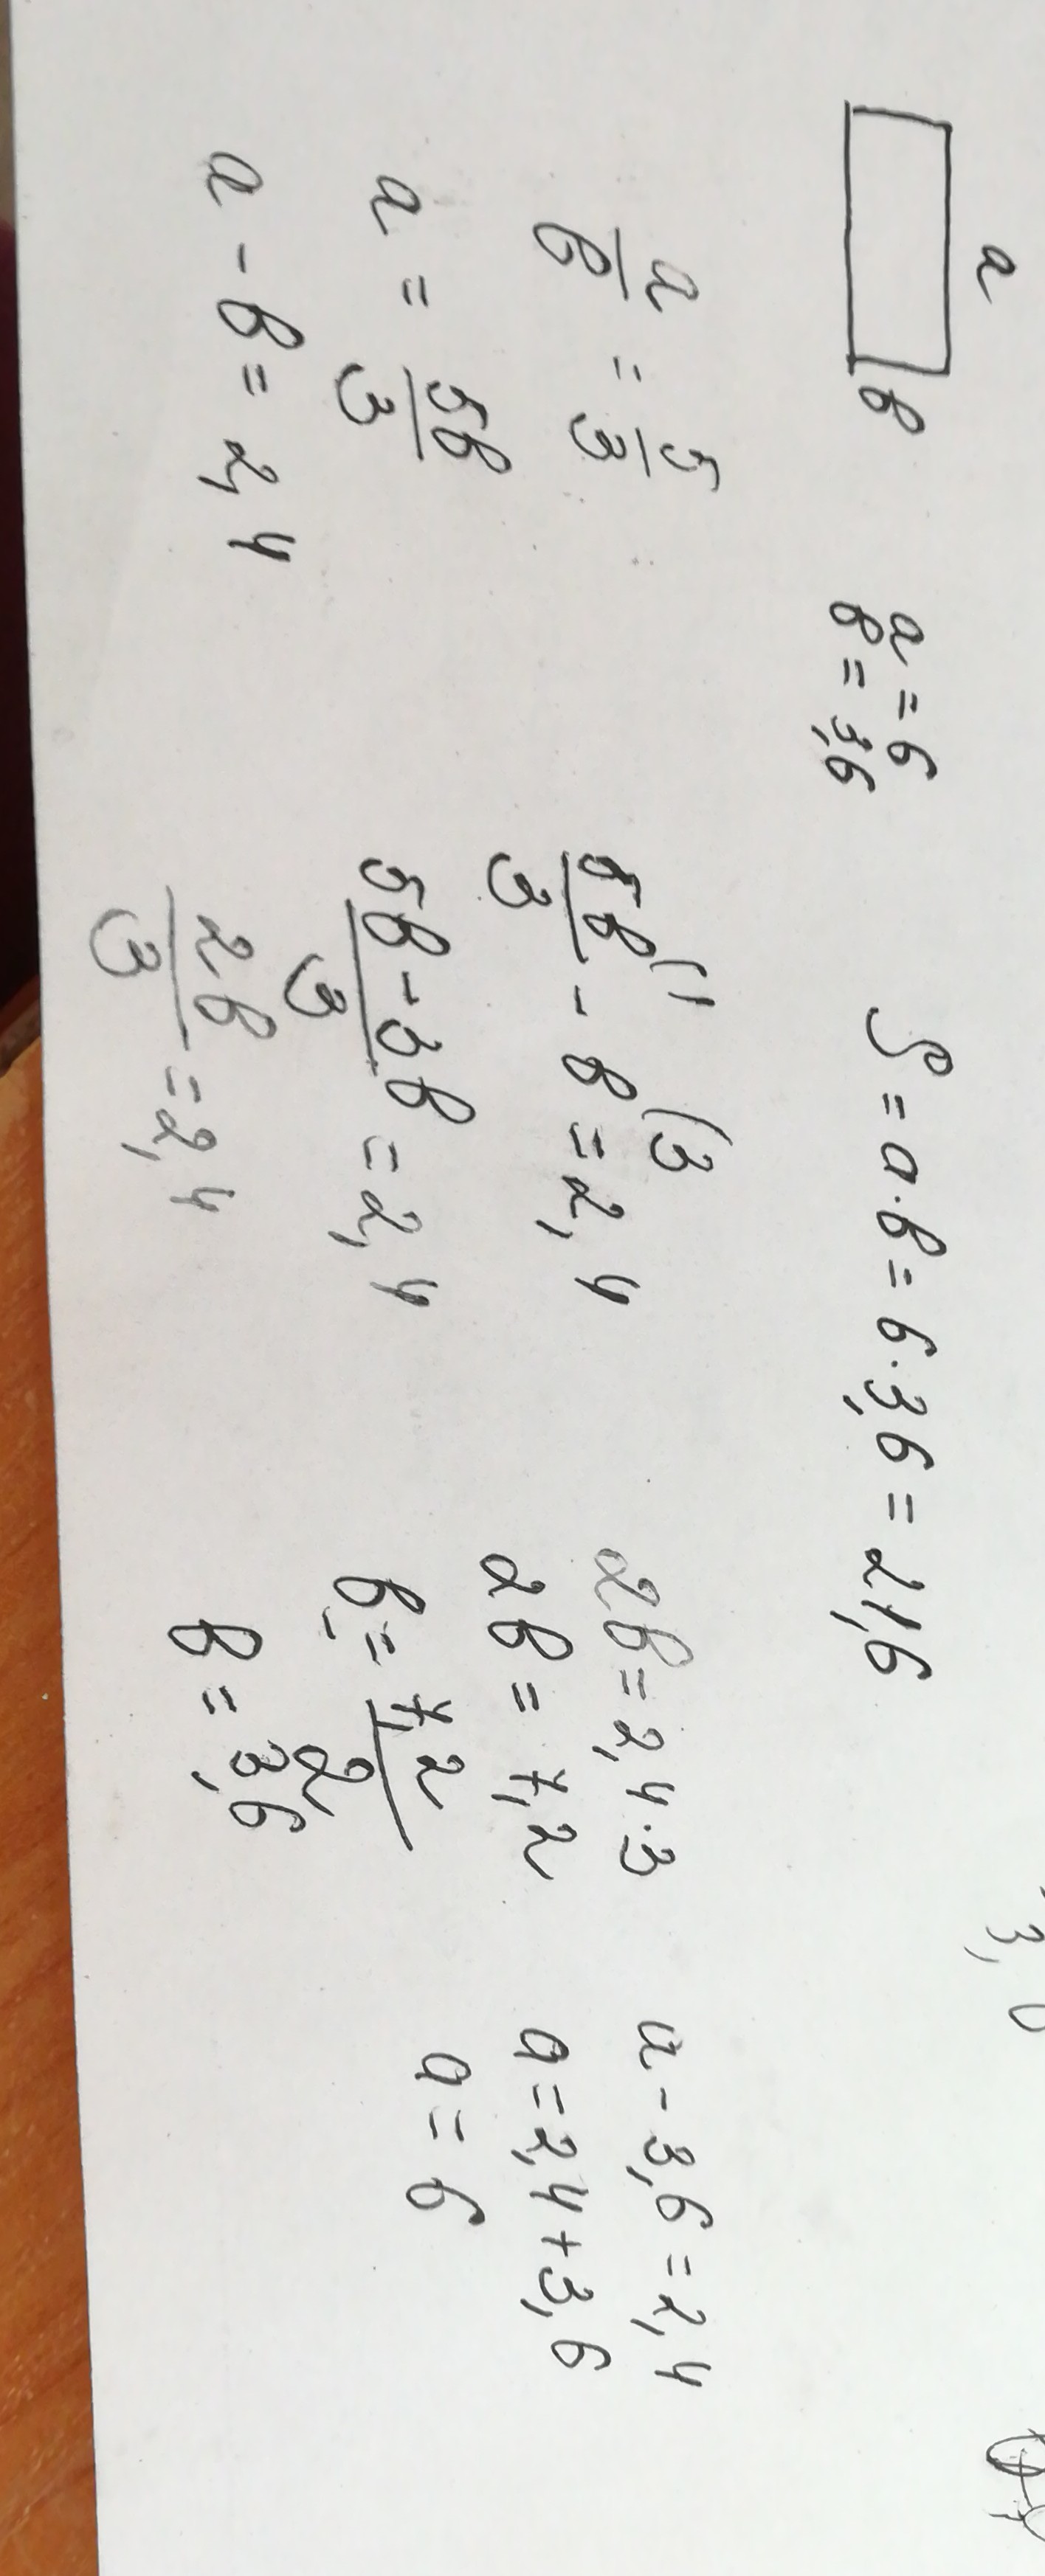 a
в
a = 6
в = 3,6
S = a · в = 6 · 3,6 = 21,6
a/в = 5/3
a = 5в/3
a - в = 2,4
5в/3 (1 - в (3 = 2,4
5в - 3в/3 = 2,4
2в/3 = 2,4
2в = 2,4 · 3
2в = 7,2
в = 7,2/2
в = 3,6
a - 3,6 = 2,4
a = 2,4 + 3,6
a = 6